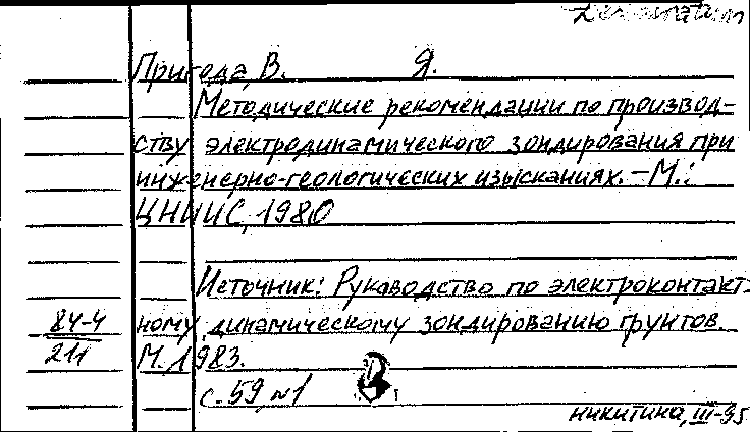 Пригода, В. Я.
Методические рекомендации по производ-
ству электродинамического зондирования при
инженерно-геологических изысканиях. – М.:
ЦНИИС, 1980
Источник: Руководство по электроконтакт-
ному динамическому зондированию грунтов.
84-4
211
М. 1983.
с. 59, №1
никитина, III-95